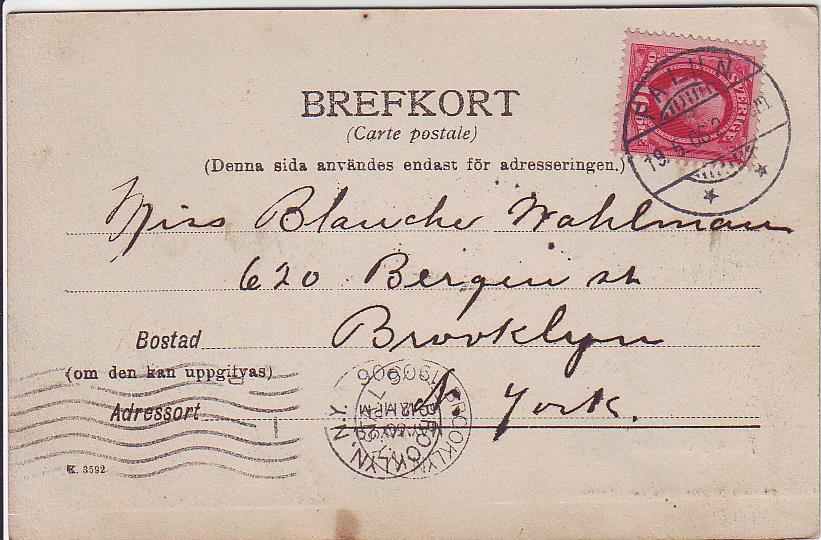 BREFKORT
(Carte postale)
(Denna sida användes endast för adresseringen.)
FALUN
19.5.06
SVERIGE
Miss Blanche Wahlman
620 Bergen st
Brooklyn
Bostad
(om den kan uppgifvas)
N. York.
Adressort
BROOKLYN, N.Y.
1906
K. 3592